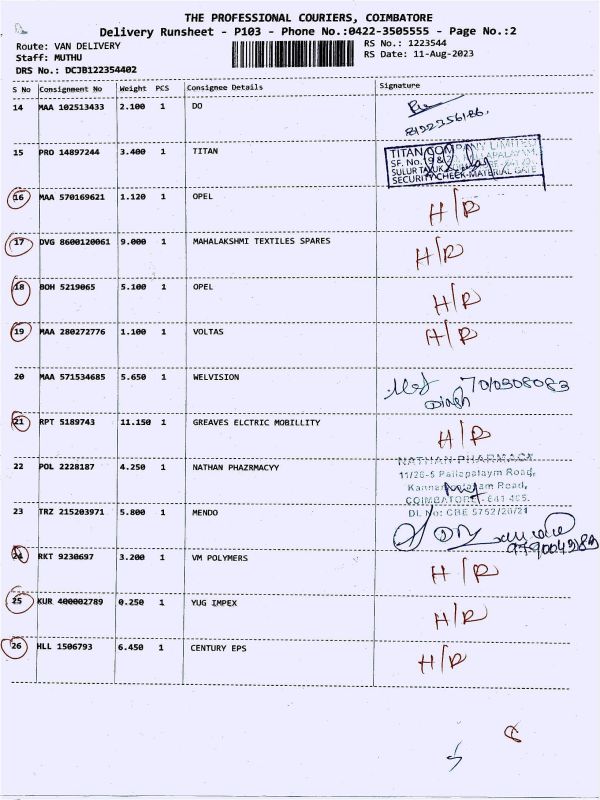 THE PROFESSIONAL COURIERS, COIMBATORE
Delivery Runsheet - P103 - Phone No.:0422-3505555 - Page No.:2
Route: VAN DELIVERY RS No.: 1223544
Staff: MUTHU RS Date: 11-Aug-2023
DRS No.: DCJB122354402
S No Consignment No Weight PCS Consignee Details Signature
14 MAA 102513433 2.100 1 DO
15 PRO 14897244 3.400 1 TITAN
TITAN COMPANY LIMITED
SF. No.
SULUR TALUK
SECURITY CHECK-MATERIAL GATE
16 MAA 570169621 1.120 1 OPEL H/R
17 DVG 8600120061 9.000 1 MAHALAKSHMI TEXTILES SPARES H/R
18 BOH 5219065 5.100 1 OPEL H/R
19 MAA 280272776 1.100 1 VOLTAS H/R
20 MAA 571534685 5.650 1 WELVISION
21 RPT 5189743 11.150 1 GREAVES ELCTRIC MOBILLITY H/R
22 POL 2228187 4.250 1 NATHAN PHAZRMACYY
NATHAN PHARMACY
11/26-5 Pallapalaym Road,
Road,
COIMBATORE - 641 405.
DL No: CBE 5752/20/21
23 TRZ 215203971 5.800 1 MENDO
24 RKT 9230697 3.200 1 VM POLYMERS H/R
25 KUR 400002789 0.250 1 YUG IMPEX H/R
26 HLL 1506793 6.450 1 CENTURY EPS H/R